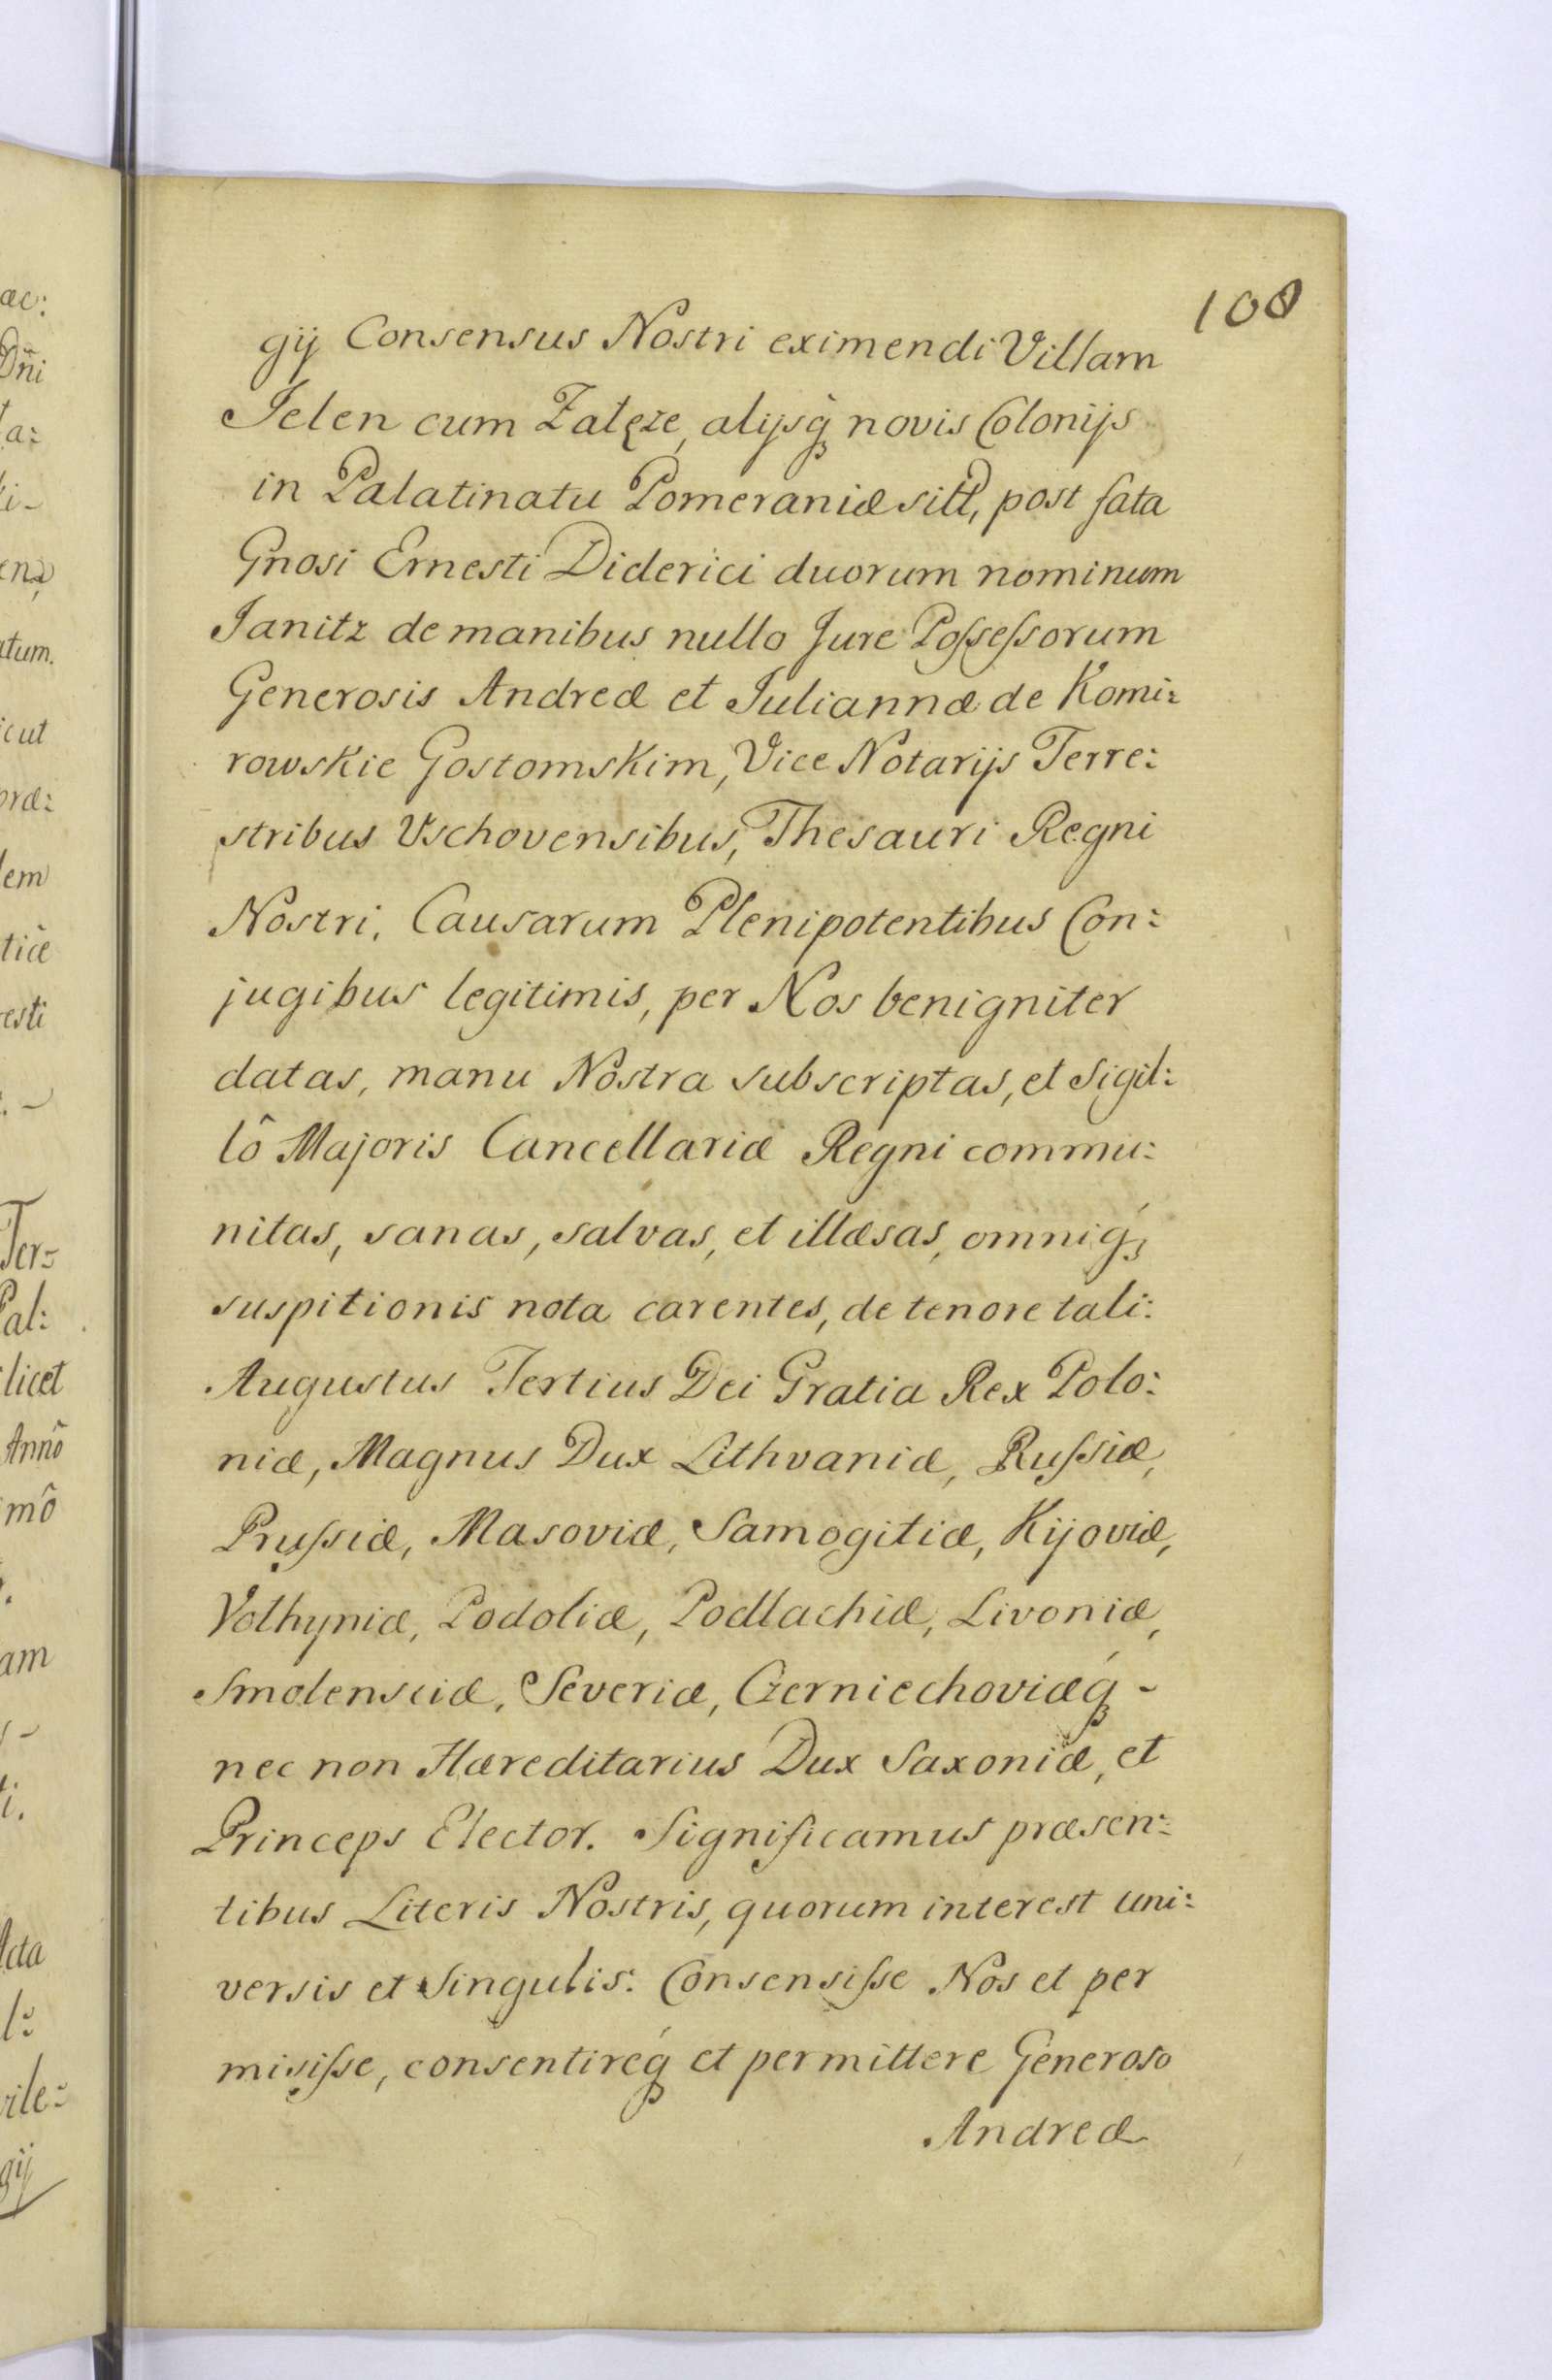 108
gij Consensus Nostri eximendi Villam
Jelen cum Załęze, alijsq́ novis Colonijs
in Palatinatu Pomeraniæ sitt, post fata
Gnosi Ernesti Diderici duorum nominum
Janitz de manibus nullo Jure Poſseſsorum
Generosis Andreæ et Juliannæ de Komi:
rowskie Gostomskim, Vice Notarijs Terre:
stribus Vschovensibus, Thesauri Regni
Nostri, Causarum Plenipotentibus Con:
jugibus legitimis, per Nos benigniter
datas, manu Nostra subscriptas, et Sigil:
lô Majoris Cancellariæ Regni commu:
nitas, sanas, salvas, et illæsas, omniq́
suspitionis nota carentes, de tenore tali:
Augustus Tertius Dei Gratia Rex Polo:
niæ, Magnus Dux Lithvaniæ, Ruſsiæ,
Pruſsiæ, Masoviæ, Samogitiæ, Kijoviæ,
Volhyniæ, Podoliæ, Podlachiæ, Livoniæ,
Smolensciæ, Severiæ, Czerniechoviæq́ -
nec non Hæreditarius Dux Saxoniæ, et
Princeps Elector. Significamus præsen:
tibus Literis Nostris, quorum interest uni:
versis et Singulis. Consensiſse Nos et per
misiſse, consentireq́ et permittere Generoso
Andreæ
ac:
Dn̄i
ta:
atum.
icut
præ:
dem
esti
Ter:
Pal:
licet
Annô
imô
am
Acta
vile:
gij